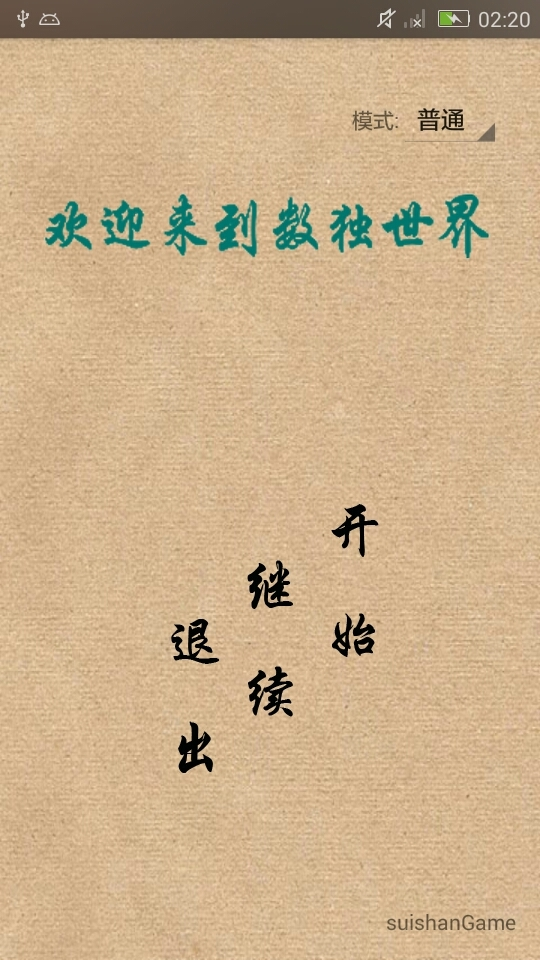 02:20
模式: 普通
欢迎来到数独世界
开始
继续
退出
suishanGame